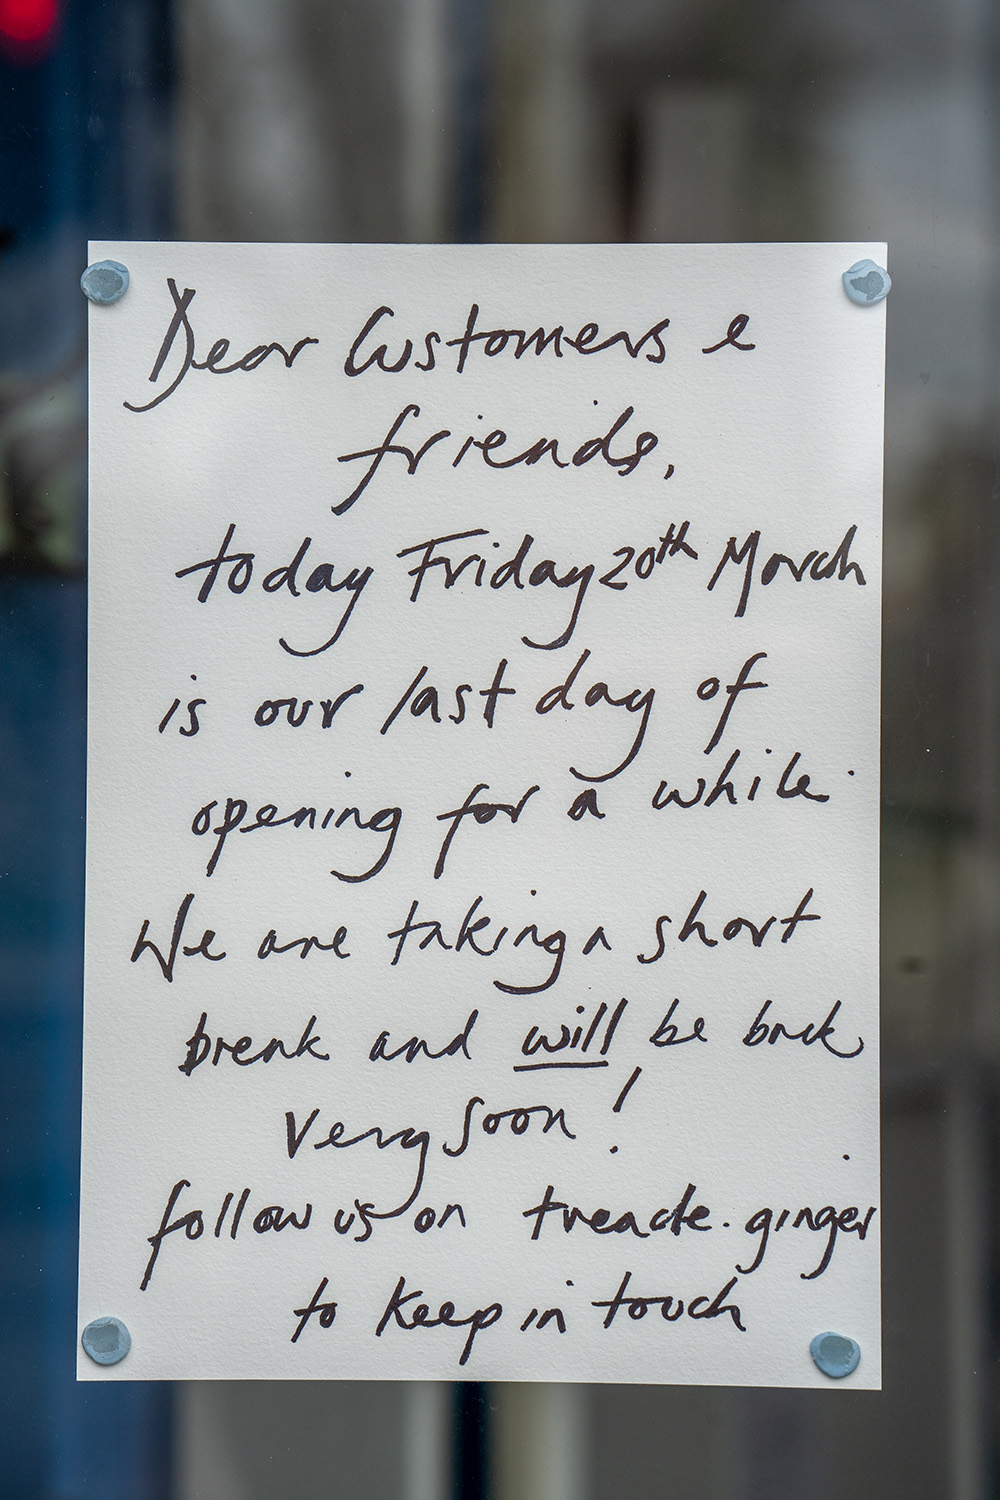 Dear Customers e
friends,
today Friday 20th March
is our last day of
opening for a while.
We are taking a short
break and will be back
very soon!
follow us on treacle.ginger
to keep in touch